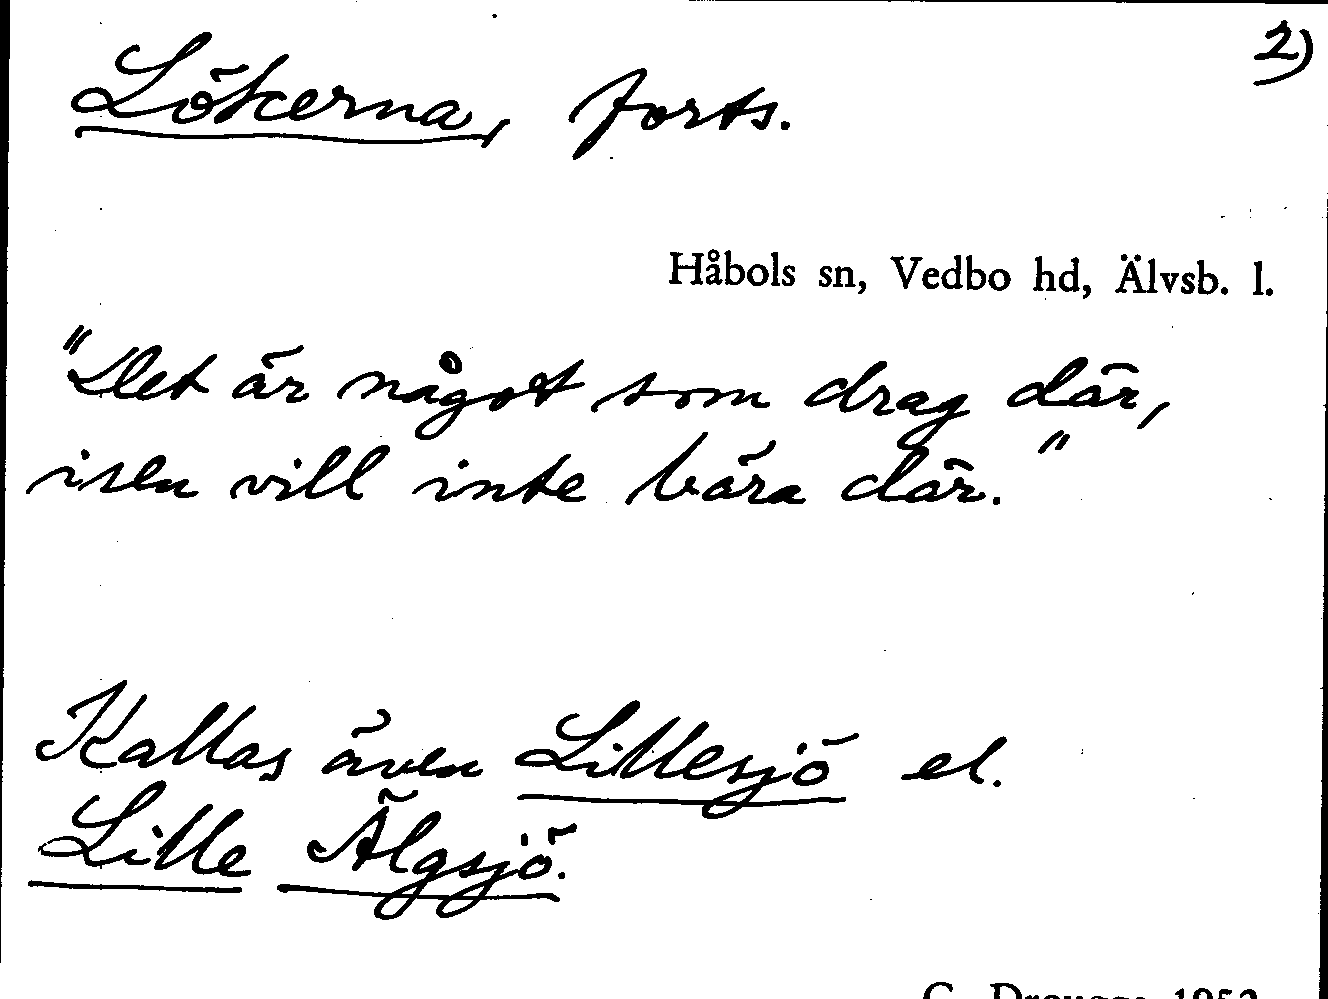 2)
Lökerna, forts.
Håbols sn, Vedbo hd, Älvsb. l.
"Det är något som drag där,
isen vill inte bära där."
Kallas även Lillesjö el.
Lille Älgsjö.